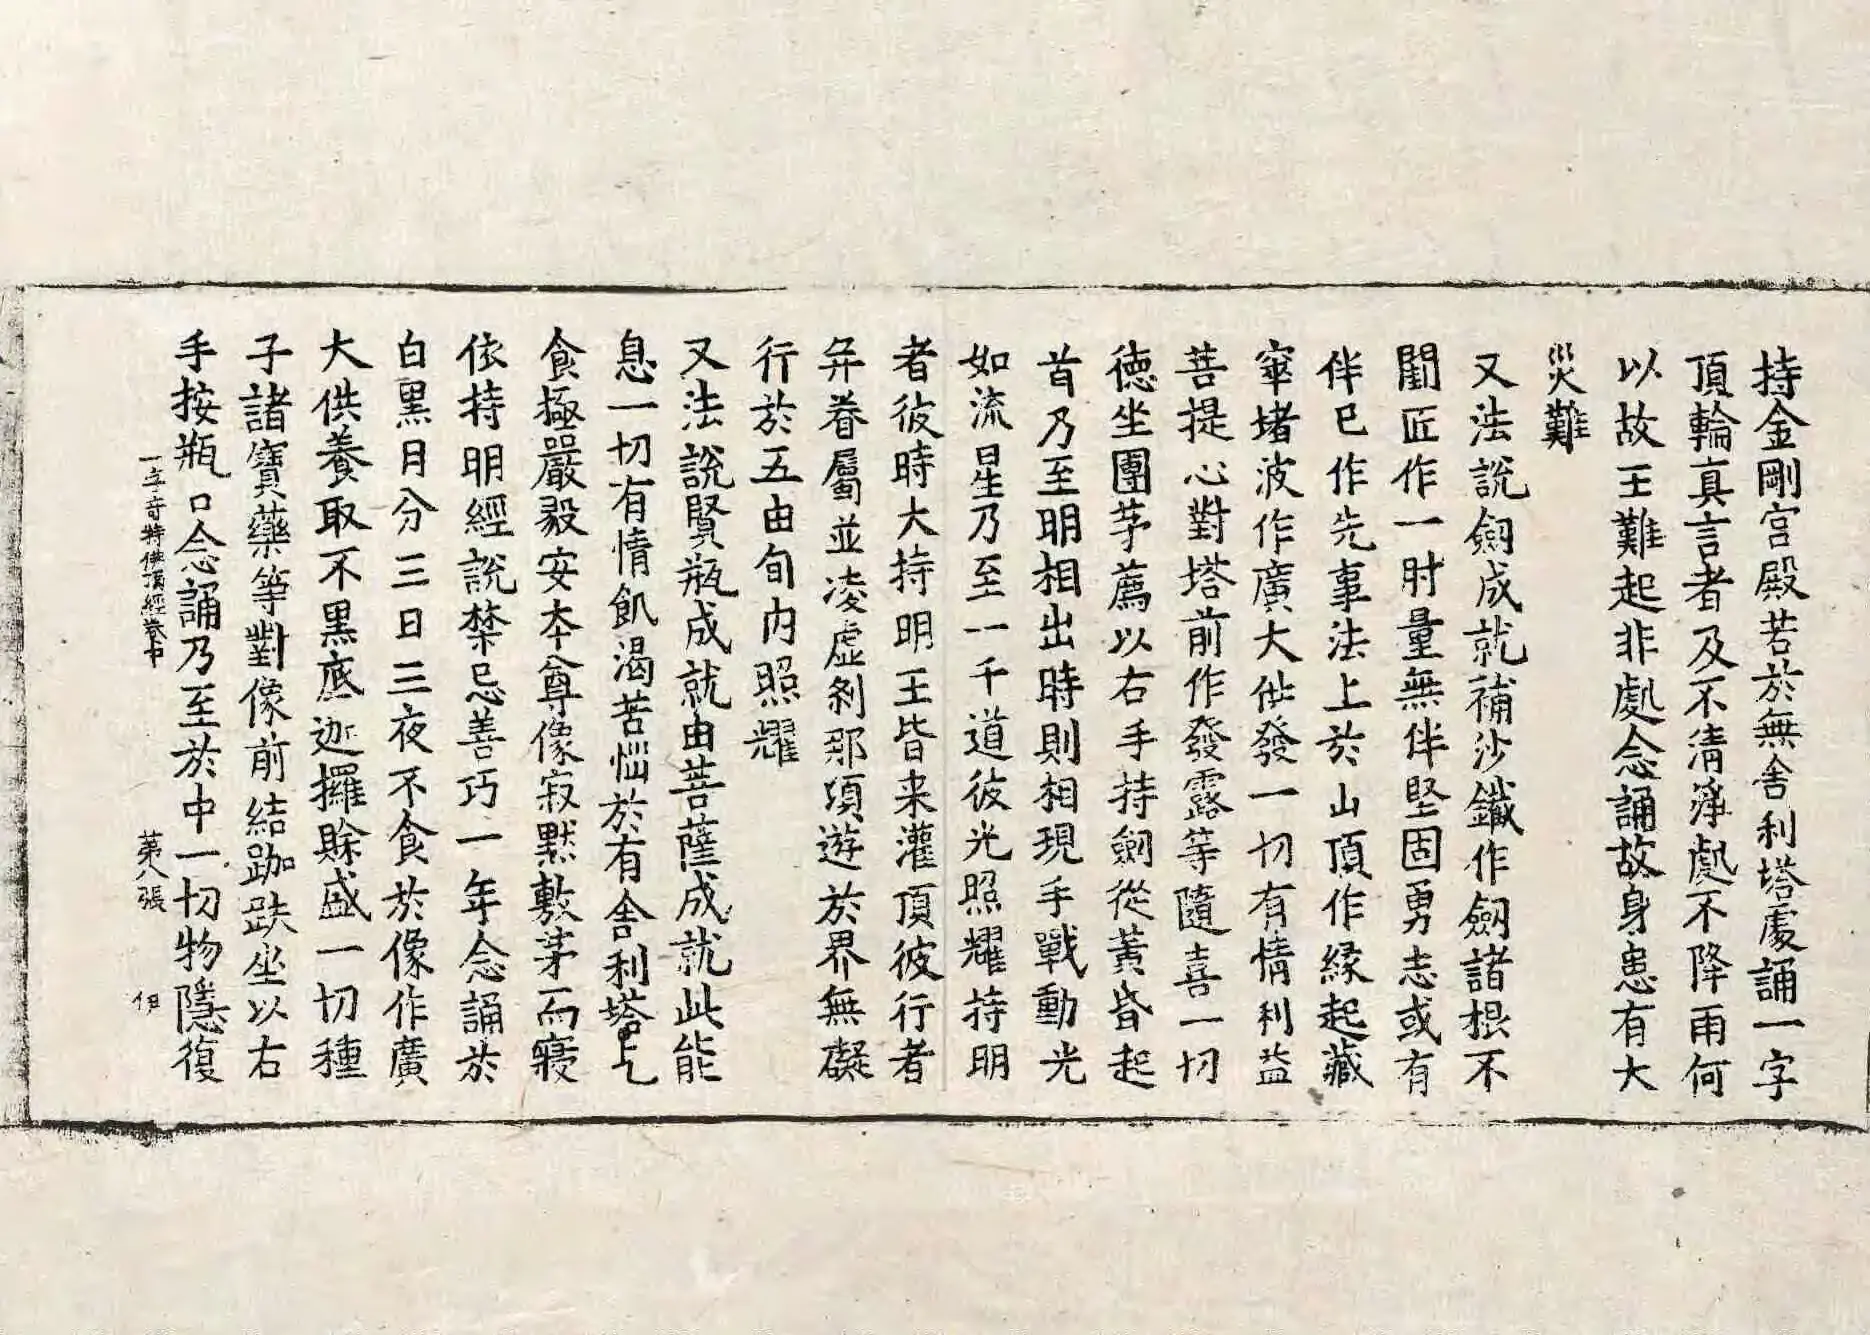 持金剛宮殿若於無舍利塔處誦一字
頂輪真言者及不清淨處不降雨何
以故王難起非處念誦故身患有大
災難
又法說劔成就補沙鐵作劔諸根不
闕匠作一肘量無伴堅固勇志或有
伴已作先事法上於山頂作緣起藏
窣堵波作廣大供發一切有情利益
菩提心對塔前作發露等隨喜一切
德坐團茅薦以右手持劔從黃昏起
首乃至明相出時則相現手戰動光
如流星乃至一千道彼光照耀持明
者彼時大持明王皆來灌頂彼行者
并眷屬並凌虛剎那頃遊於界無礙
行於五由旬內照耀
又法說賢瓶成就由菩薩成就此能
息一切有情飢渴苦惱於有舍利塔上
食極嚴毅安本尊像寂默敷茅而寢
依持明經說禁忌善巧一年念誦於
白黑月分三日三夜不食於像作廣
大供養取不黑底迦攞賖盛一切種
子諸寶藥等對像前結跏趺坐以右
手按瓶口念誦乃至於中一切物隱復
一字奇特佛頂經卷中 第八張 伊